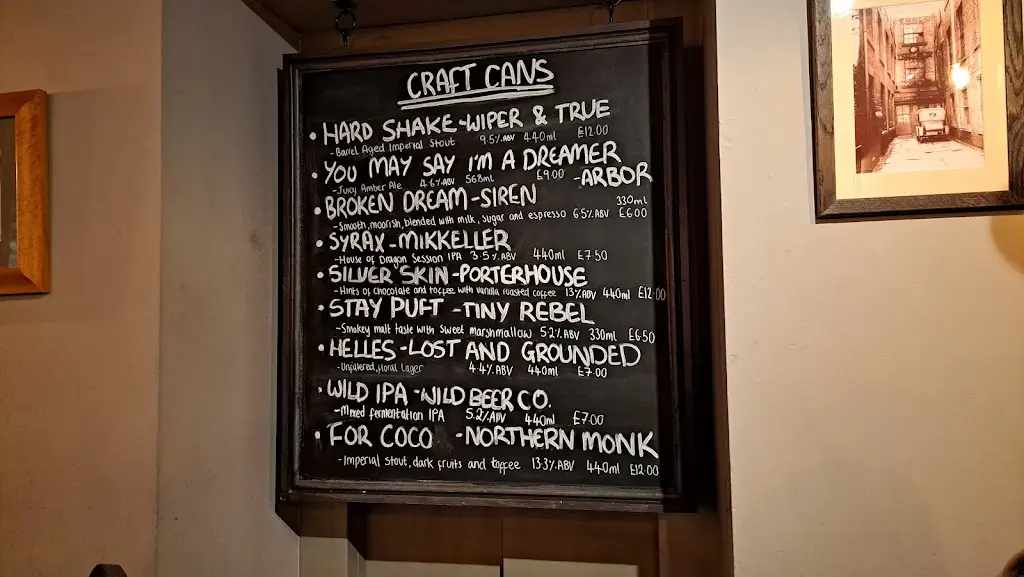 CRAFT CANS
• HARD SHAKE - WIPER & TRUE
- Barrel Aged Imperial Stout 9.5% ABV 440ml £12.00
• YOU MAY SAY I'M A DREAMER
- Juicy Amber Ale 4.6% ABV 568ml £9.00 - ARBOR
• BROKEN DREAM - SIREN 330ml
- Smooth, moorish, blended with milk, sugar and espresso 6.5% ABV £6.00
• SYRAX - MIKKELLER
- House of Dragon Session IPA 3.5% ABV 440ml £7.50
• SILVER SKIN - PORTERHOUSE
- Hints of chocolate and toffee with vanilla roasted coffee 13% ABV 440ml £12.00
• STAY PUFT - TINY REBEL
- Smokey malt taste with sweet marshmallow 5.2% ABV 330ml £6.50
• HELLES - LOST AND GROUNDED
- Unfiltered, floral lager 4.4% ABV 440ml £7.00
• WILD IPA - WILD BEER CO.
- Mixed fermentation IPA 5.2% ABV 440ml £7.00
• FOR COCO - NORTHERN MONK
- Imperial stout, dark fruits and toffee 13.3% ABV 440ml £12.00